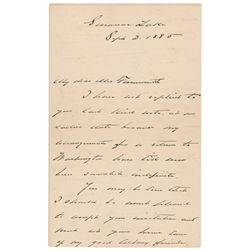 Saranac Lake
Sept 2. 1885
My dear Mrs
I have not replied to
your last kind note at an
earlier date because my
arrangements for a return to
Washington have till now
been somewhat indefinite.
You may be sure that
I should be most pleased
to accept your invitation and
meet at your home some
of my good Albany friends